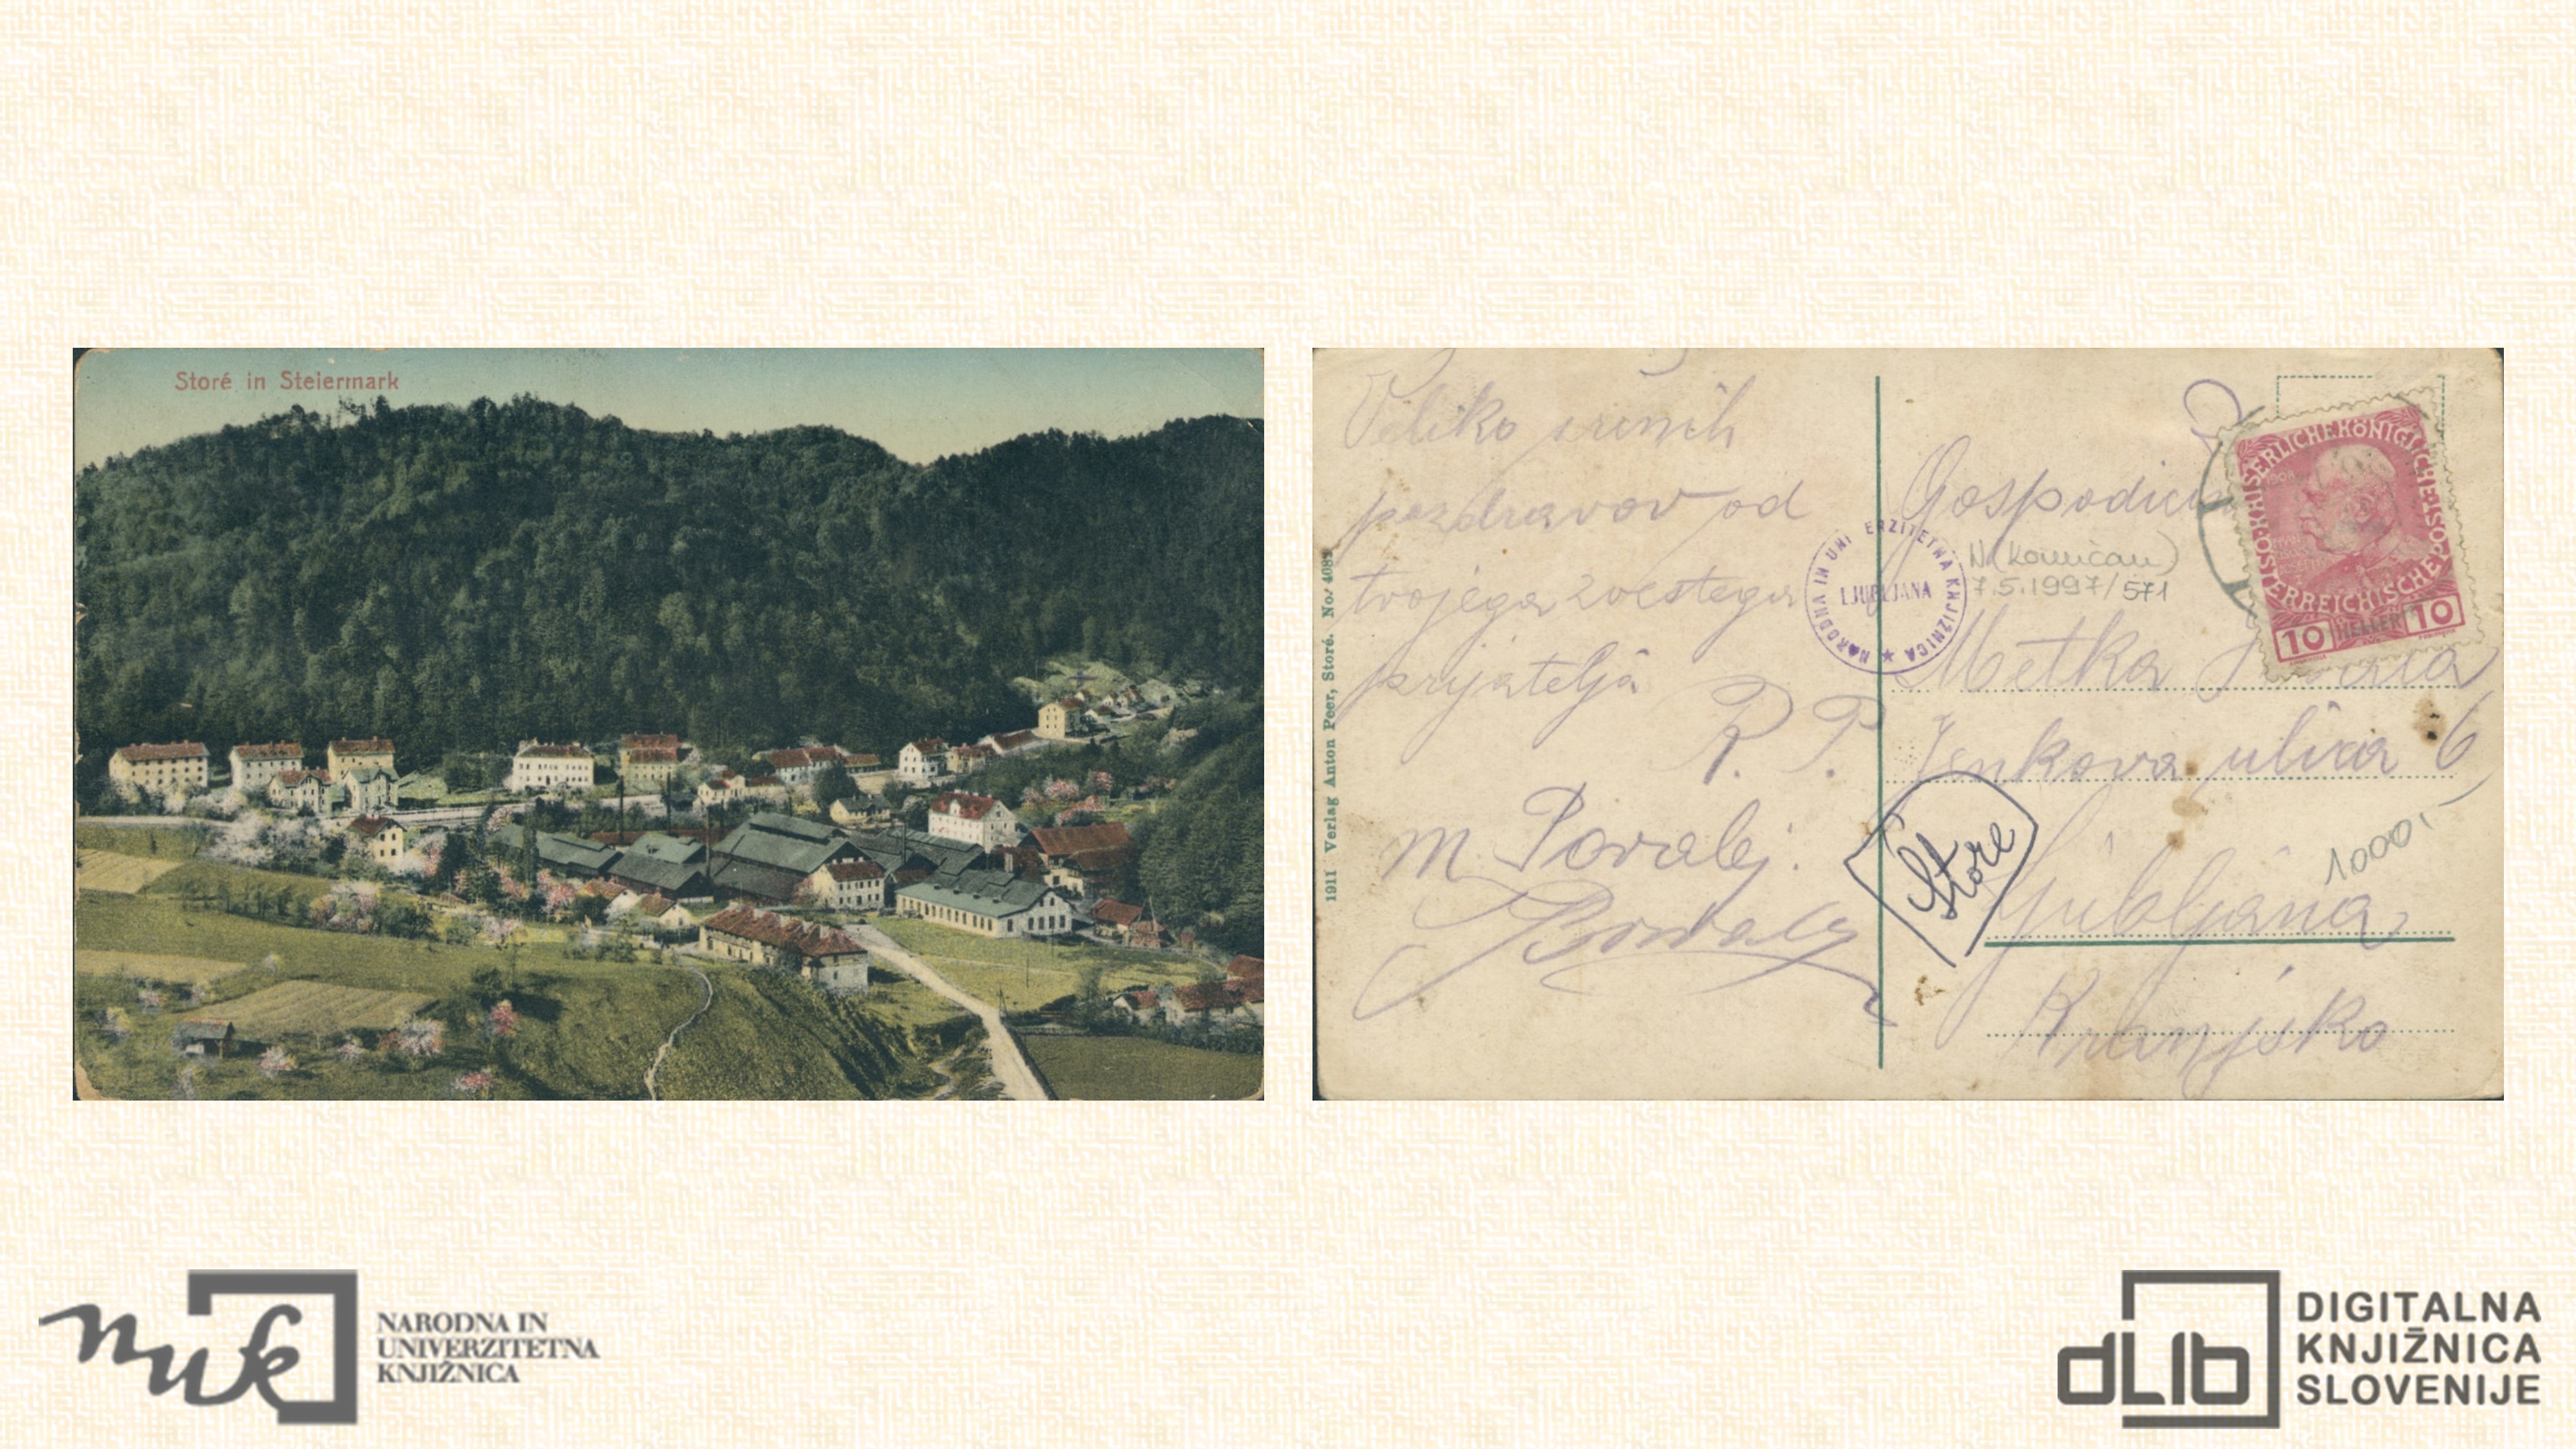 Storé in Steiermark
Veliko srčnih
pozdravov od
tvojega zvestega
prijatelja
R. P.
m Povalej.
1911 Verlag Anton Peer, Storé. No. 4089
NARODNA IN UNIVERZITETNA KNJIŽNICA ★
LJUBLJANA
Gospodična
7.5.1997/571
Metka
Jenkova ulica 6
Store
1000,-
Ljubljana
Kranjsko
KAISERLICHE KÖNIGLICHE ÖSTERREICHISCHE POST
10 HELLER 10
NARODNA IN
UNIVERZITETNA
KNJIŽNICA
nuk
dLib
DIGITALNA
KNJIŽNICA
SLOVENIJE